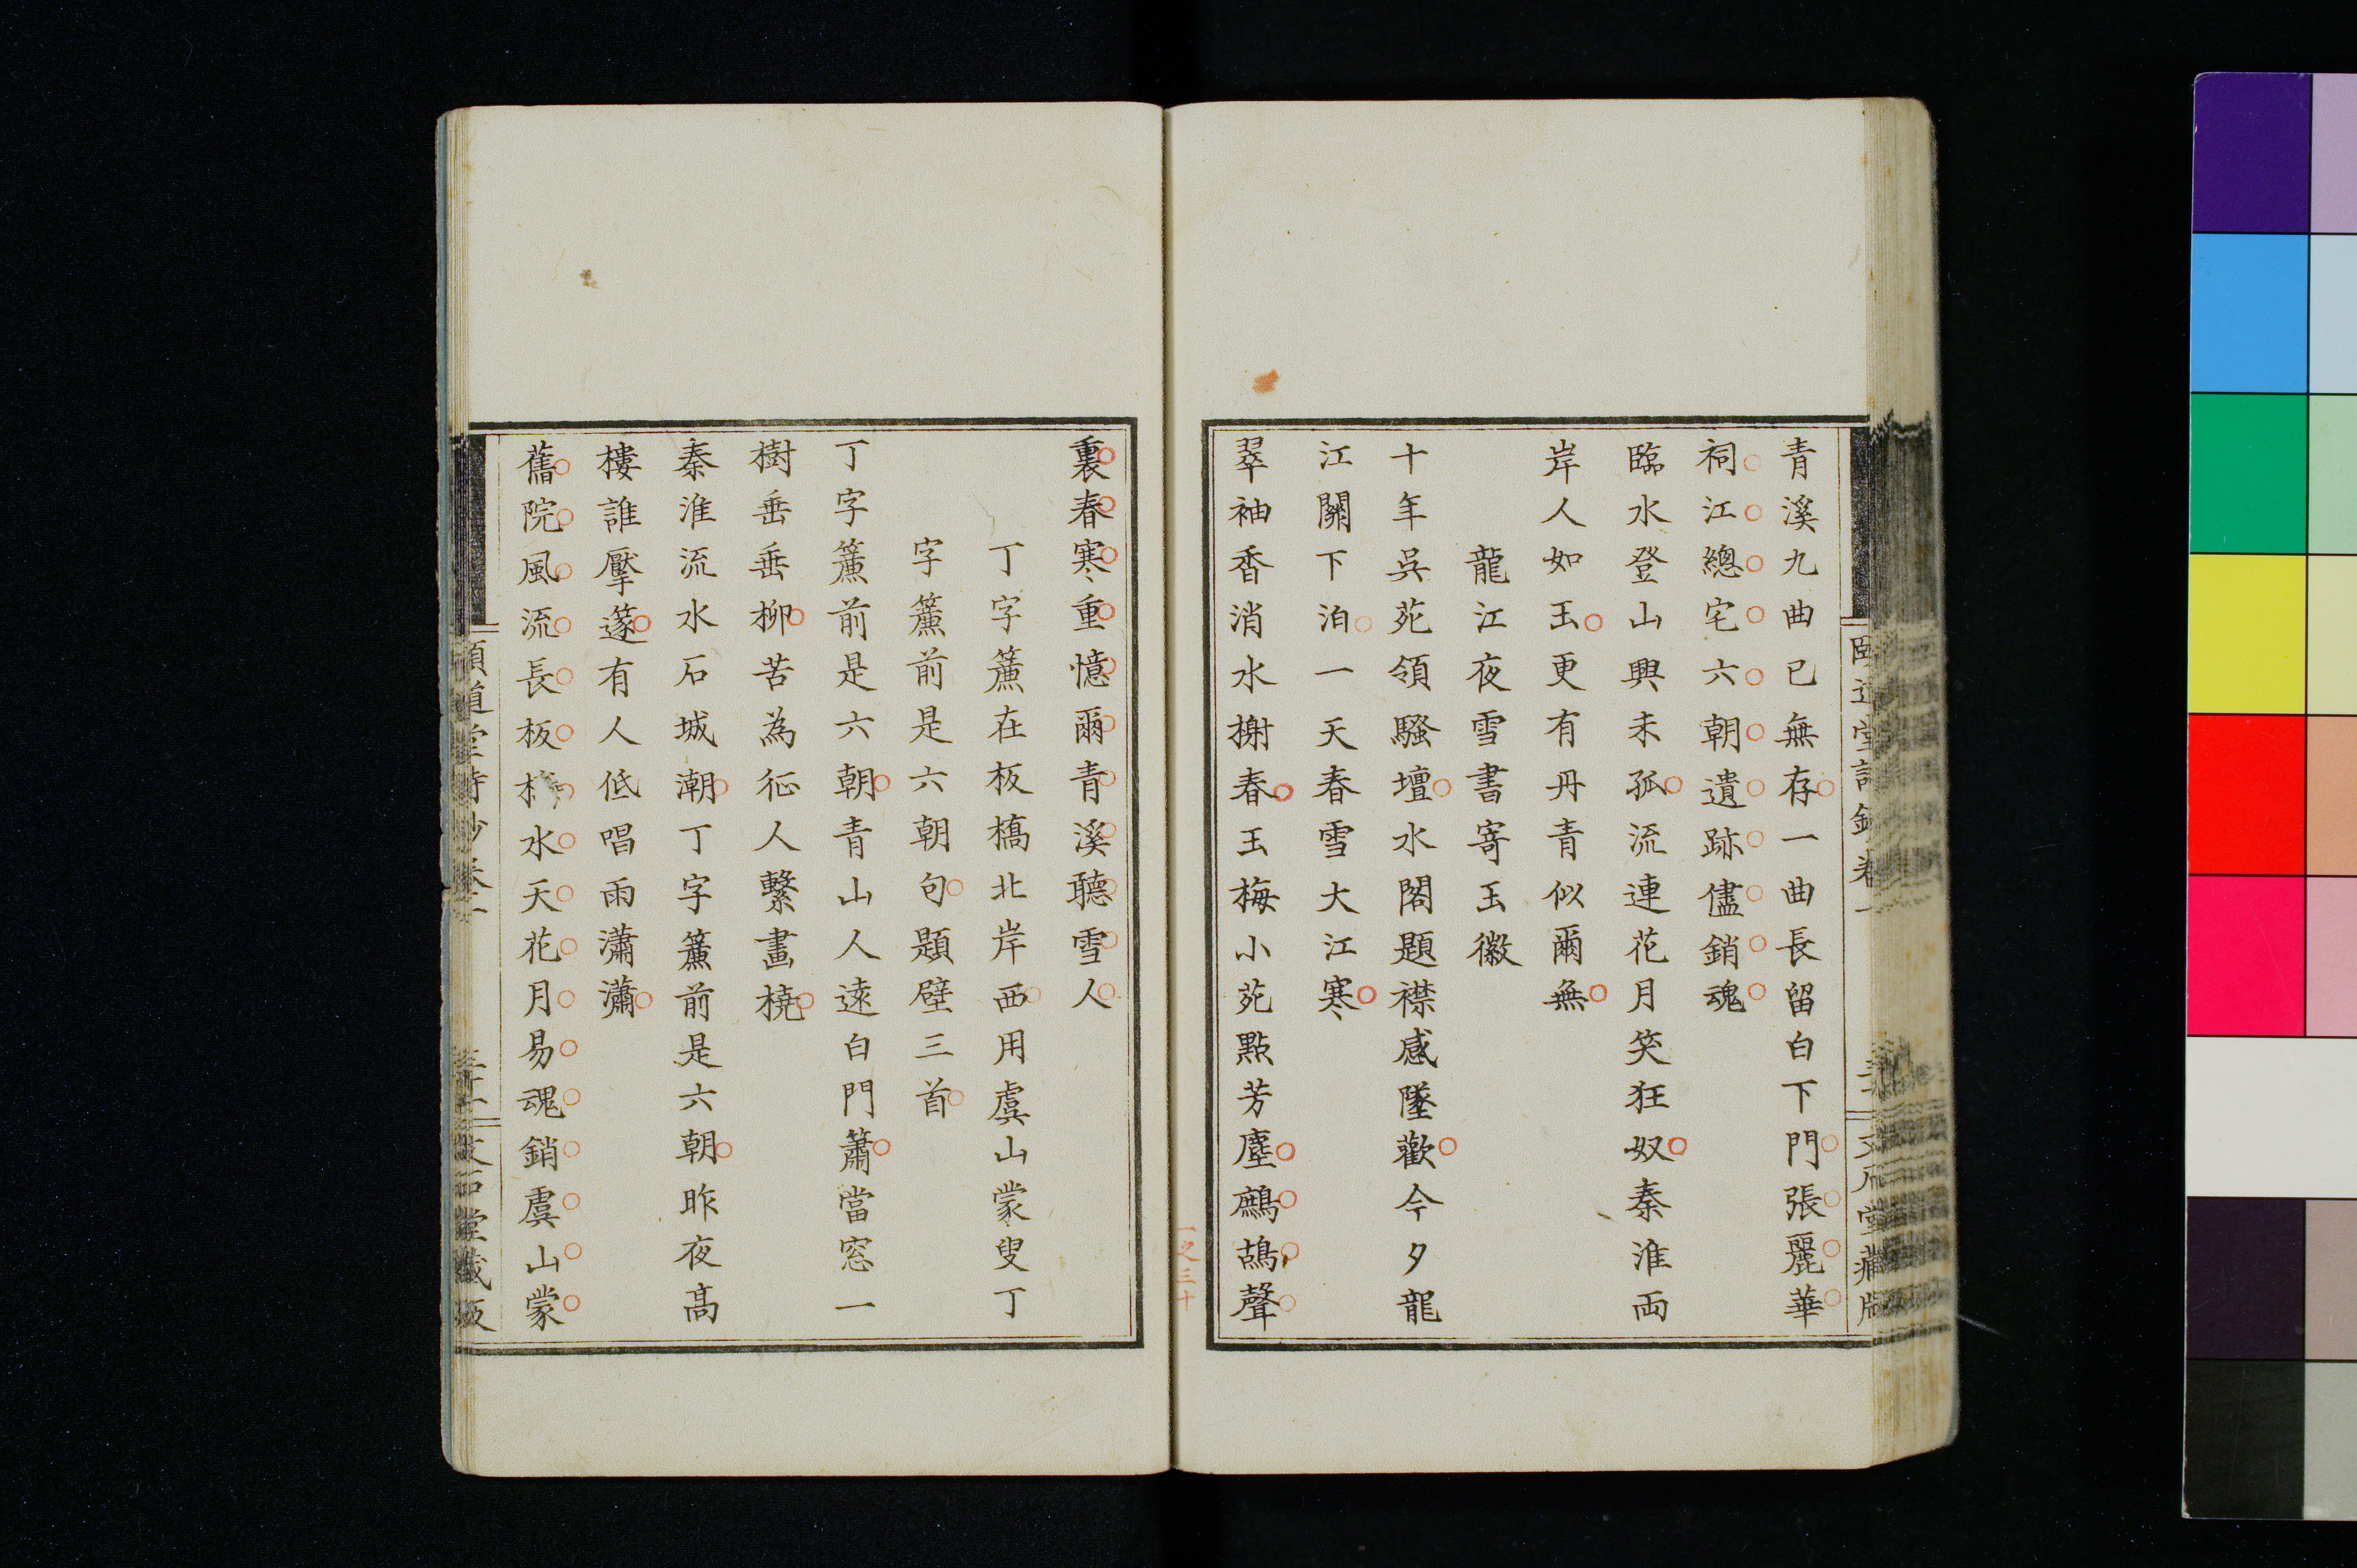 青溪九曲已無存一曲長留白下門張麗華
祠江總宅六朝遺跡儘銷魂
臨水登山興未孤流連花月笑狂奴秦淮両
岸人如玉更有丹青似爾無
龍江夜雪書寄玉徽
十年呉苑領騷壇水閣題襟感墜歡今夕龍
江關下泊一天春雪大江寒
翠袖香消水榭春玉梅小苑點芳塵鷓鴣聲
一之三十
裏春寒重憶爾青溪聽雪人
丁字簾在板橋北岸西用虞山蒙叟丁
字簾前是六朝句題壁三首
丁字簾前是六朝青山人遠白門簫當窓一
樹垂垂柳苦為征人繫畫橈
秦淮流水石城潮丁字簾前是六朝昨夜髙
樓誰擪篴有人低唱雨瀟瀟
舊院風流長板水天花月易魂銷虞山蒙
頤道堂詩鈔卷
堂藏版